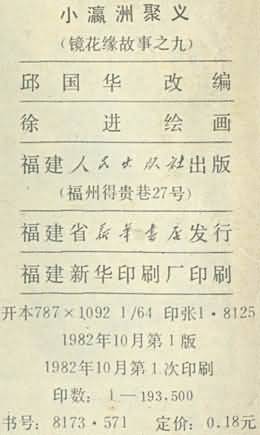 小瀛洲聚义
(镜花缘故事之九)
邱国华 改编
徐进 绘画
福建人民出版社出版
(福州得贵巷27号)
福建省新华书店发行
福建新华印刷厂印刷
开本787×1092 1/64 印张1·8125
1982年10月第1版
1982年10月第1次印刷
印数: 1—193,500
书号: 8173·571 定价: 0.18元